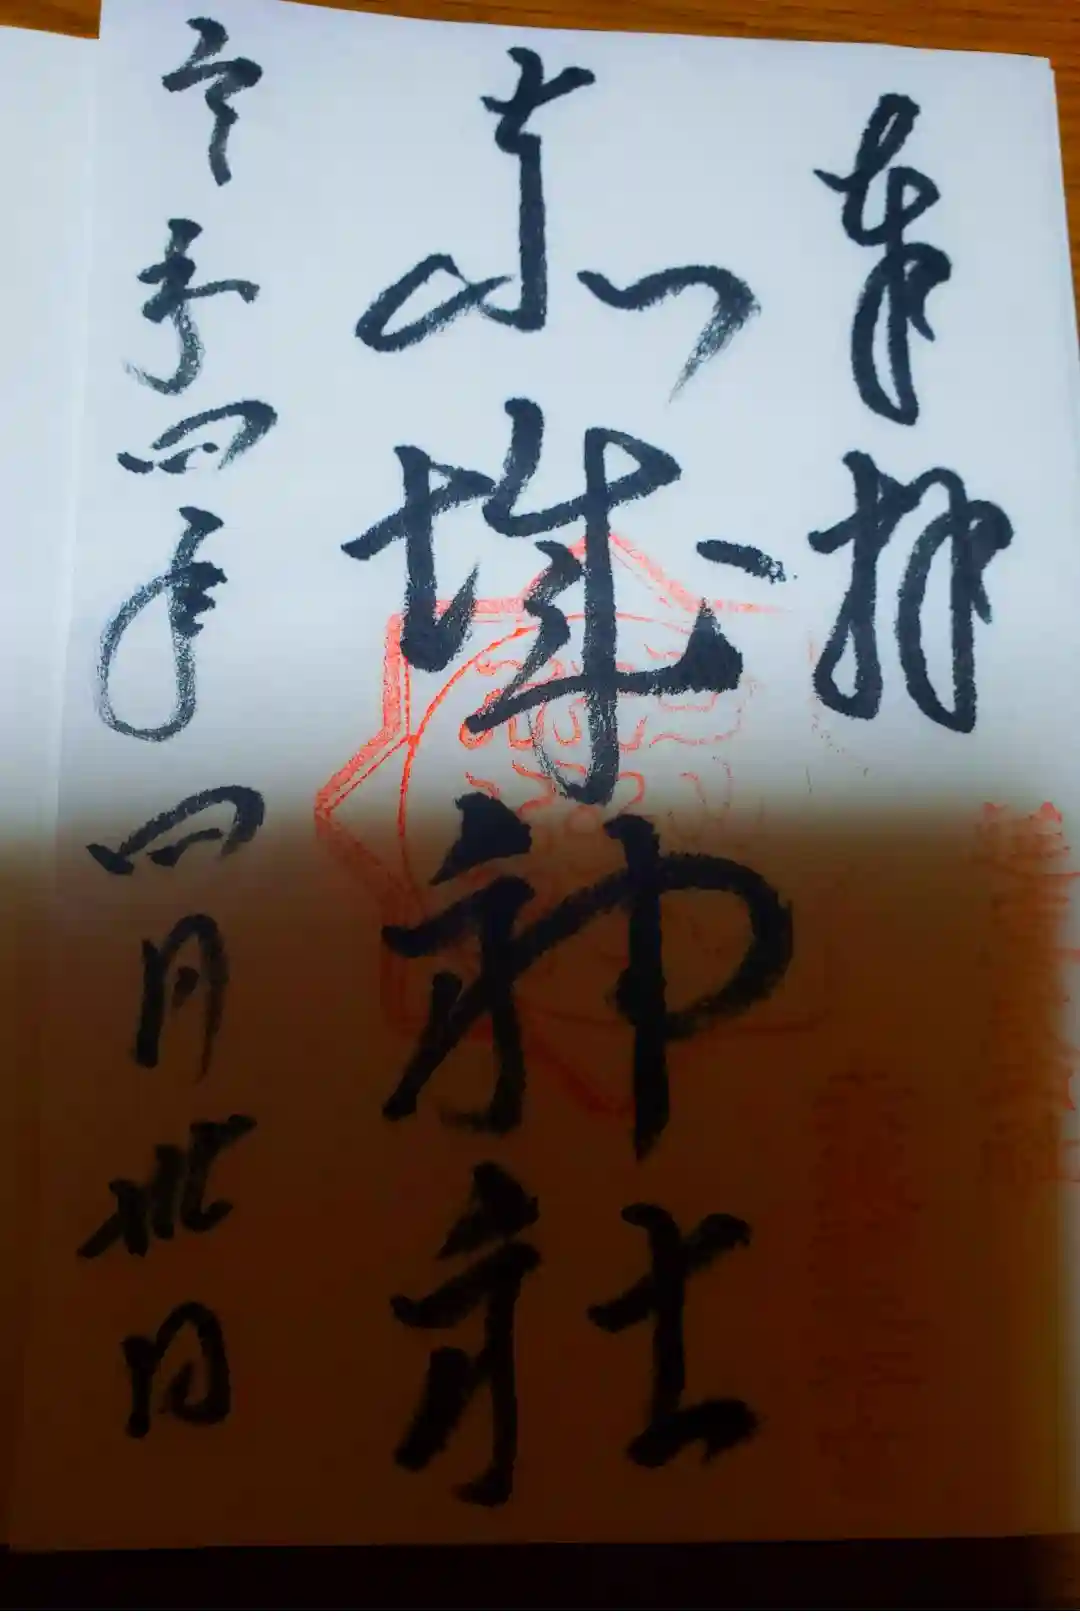 奉拝
赤城神社
令和四年四月 日